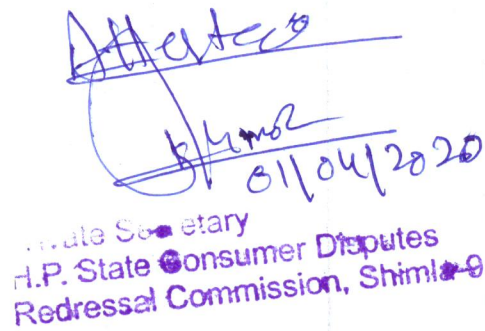 Attested
01/04/2020
Secretary
H.P. State Consumer Disputes
Redressal Commission, Shimla-9